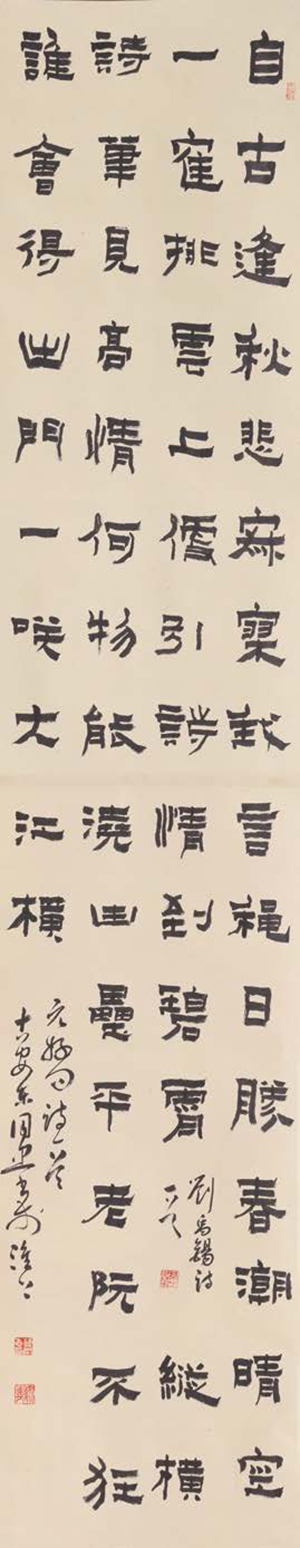 自古逢秋悲寂寞我言穐日勝春潮晴空
一寉排雲上便引詩情到碧霄
劉禹錫詩
一首
縱橫
詩筆見高情何物能澆凷壘平老阮不狂
誰會得出門一咲大江橫
元好問詩一首